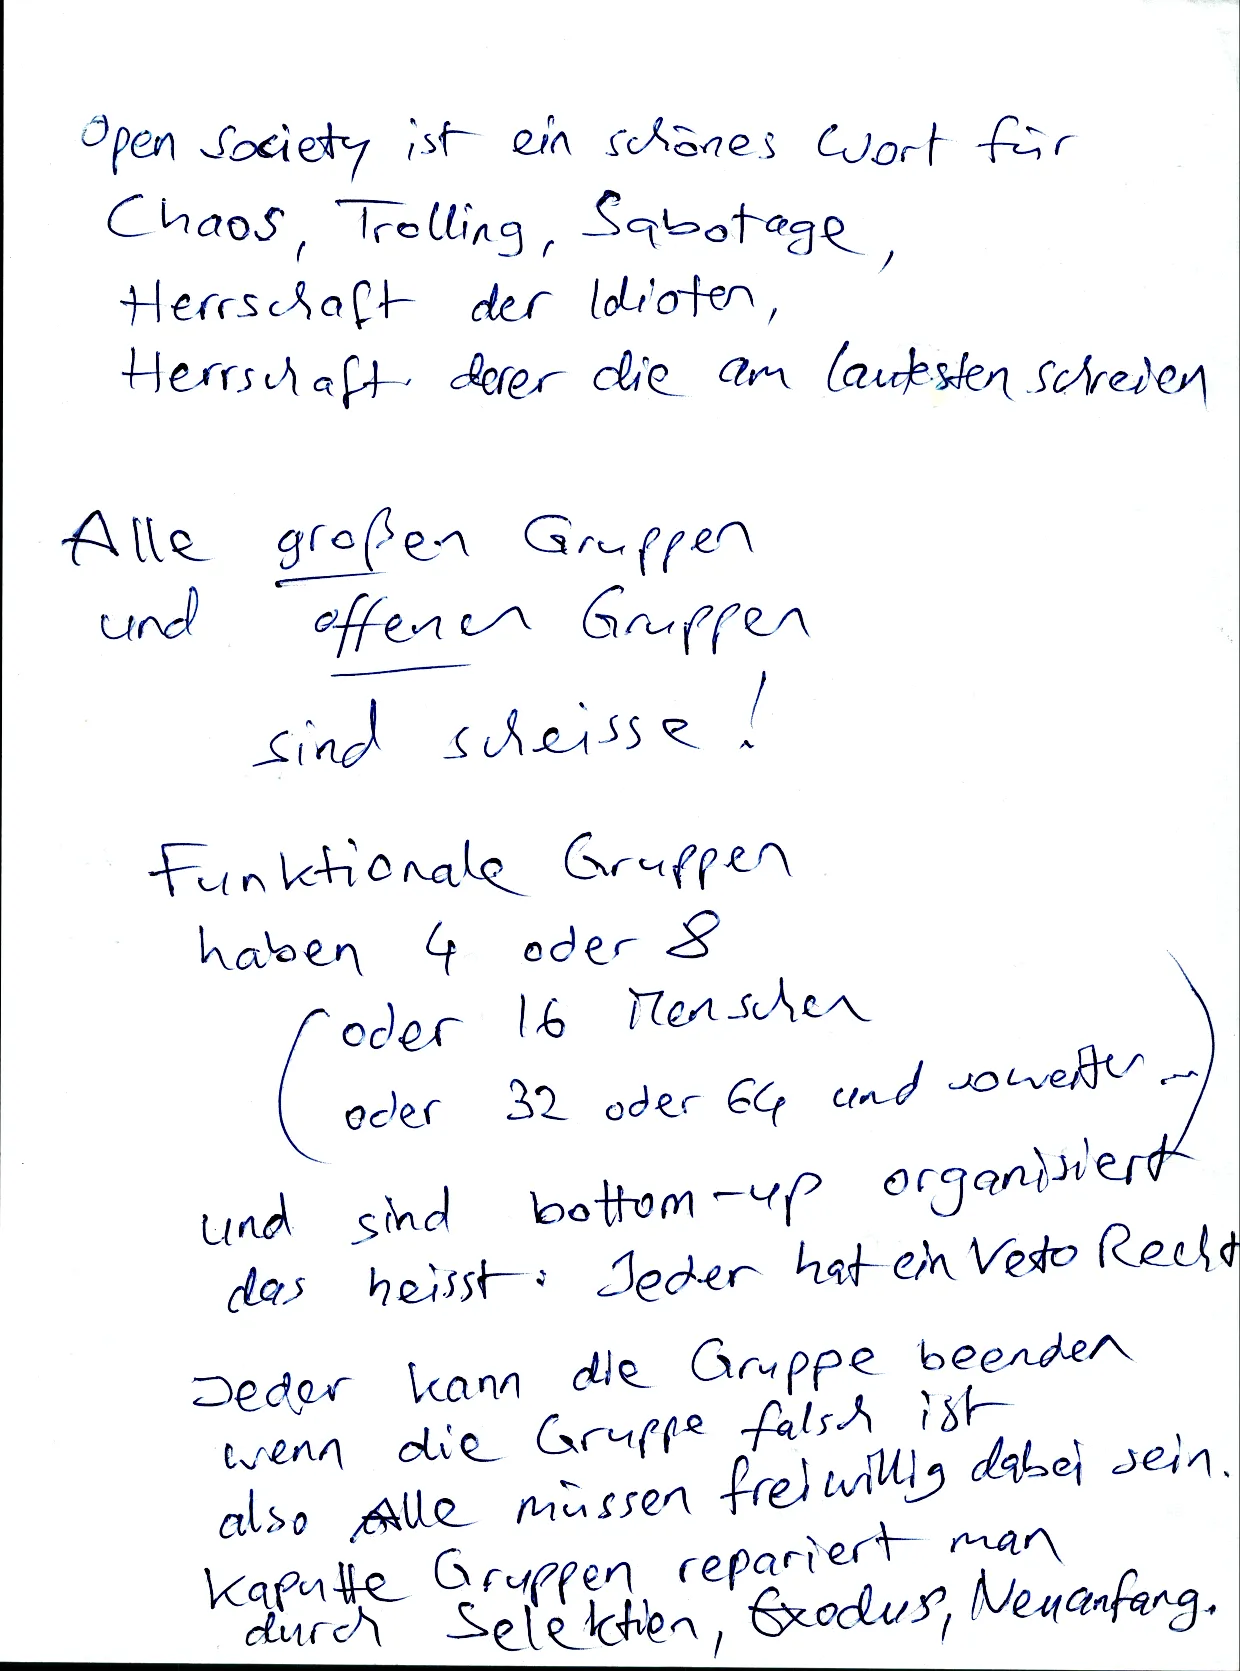 Open Society ist ein schönes Wort für
Chaos, Trolling, Sabotage,
Herrschaft der Idioten,
Herrschaft derer die am lautesten schreien
Alle großen Gruppen
und offenen Gruppen
sind scheisse!
Funktionale Gruppen
haben 4 oder 8
(oder 16 Menschen
oder 32 oder 64 und soweiter...)
und sind bottom-up organisiert
das heisst: Jeder hat ein Veto Recht
Jeder kann die Gruppe beenden
wenn die Gruppe falsch ist
also Alle müssen freiwillig dabei sein.
Kaputte Gruppen repariert man
durch Selektion, Exodus, Neuanfang.